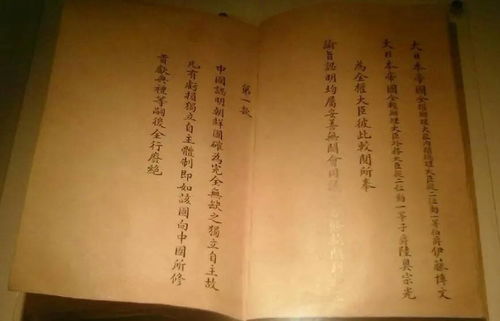 大日本帝國全權辦理大臣內閣總理大臣從二位勳一等伯爵伊藤博文
大日本帝國全權辦理大臣外務大臣從二位勳一等子爵陸奧宗光
為全權大臣彼此較閱所奉
諭旨認明均屬妥善無闕會同議各條款
第一款
中國認明朝鮮國確為完全無缺之獨立自主故
凡有虧損獨立自主體制即如該國向中國所修
貢獻典禮等嗣後全行廢絕